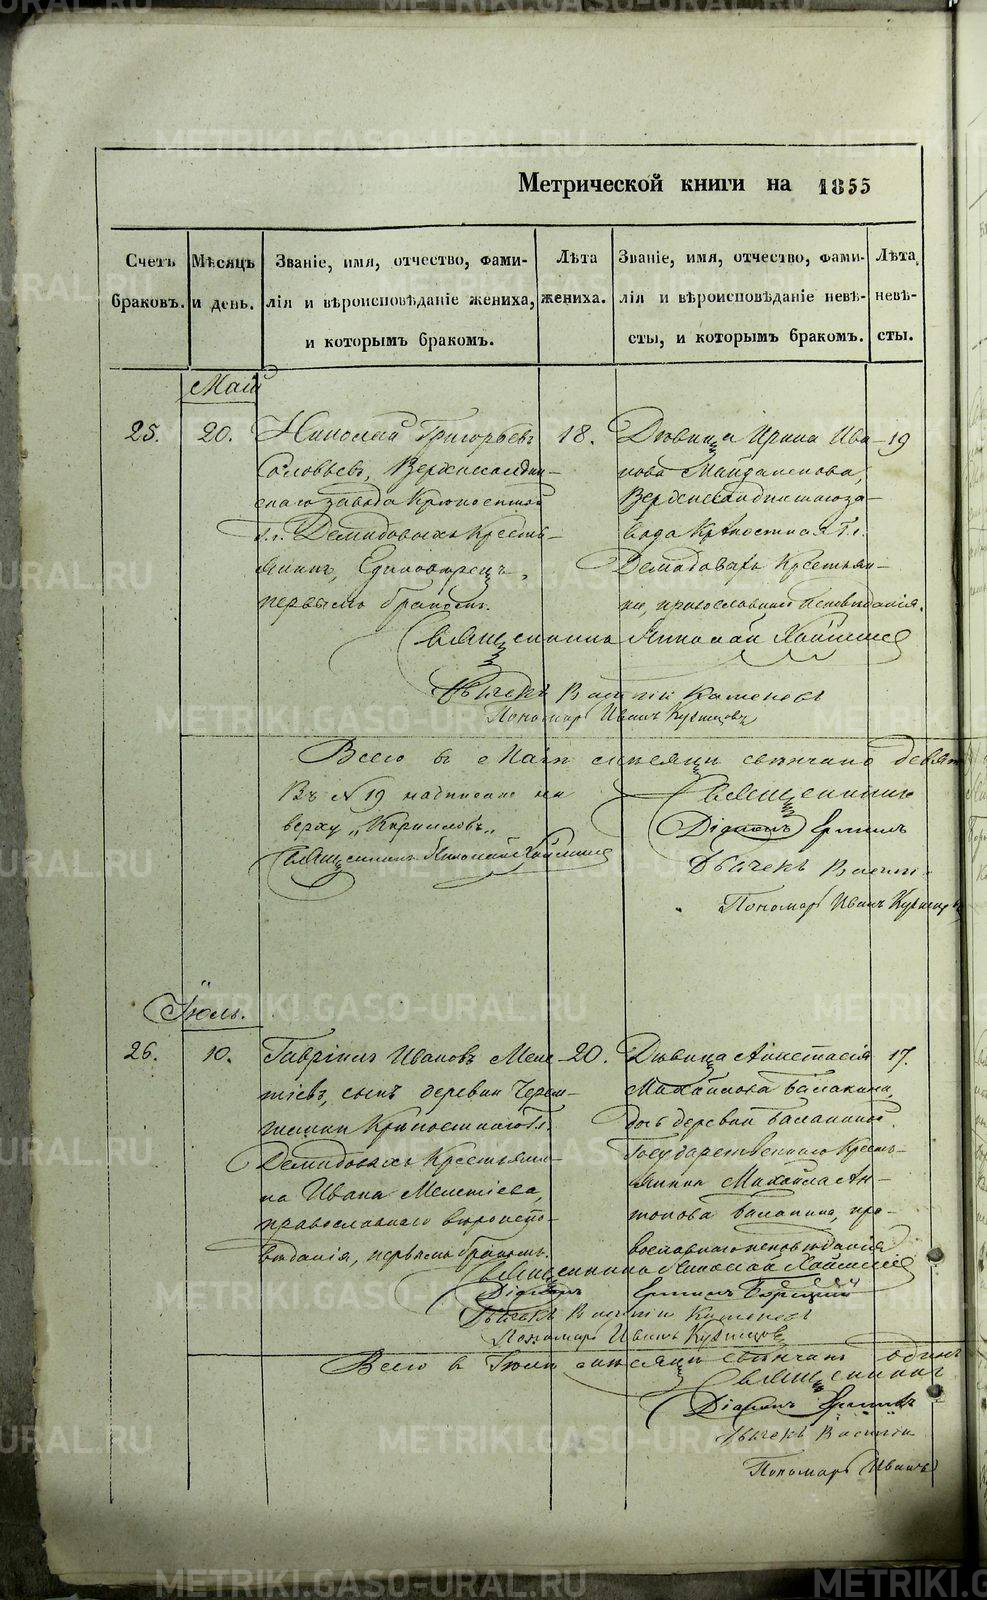 Метрической книги на 1855
Счетъ браковъ.
Мѣсяцъ и день.
Званіе, имя, отчество, фами-
лія и вѣроисповѣданіе жениха,
и которымъ бракомъ.
Лѣта
жениха.
Званіе, имя, отчество, фами-
лія и вѣроисповѣданіе невѣ-
сты, и которымъ бракомъ.
Лѣта
невѣ-
сты.
Май
25.
20.
Николай Григорьевъ
Соловьевъ, Верхнесалдин-
скаго завода Крѣпостной
г.г. Демидовыхъ Кресть-
янинъ, Единовѣрецъ,
первымъ бракомъ.
18.
Дѣвица Ирина Ива-
нова Майданкова,
Верхнесалдинскаго за-
вода Крѣпостная г.г.
Демидовыхъ Крестьян-
ка, православнаго исповѣданія.
19
Священникъ Николай
Дьячекъ Василій Каменевъ
Пономарь Иванъ Кузнецовъ
Всего въ Маѣ мѣсяцѣ вѣнчано девят
Въ № 19 надписано на
верху „Кирилловъ„
Священникъ Николай
Священникъ
Діаконъ Ермилъ
Дьячекъ Васил
Пономарь Иванъ Кузнецовъ
Іюль.
26.
10.
Гавріилъ Ивановъ Меле-
тіевъ, сынъ деревни Черем-
шанки Крѣпостнаго г.г.
Демидовыхъ Крестьяни-
на Ивана Мелетіева,
православнаго вѣроиспо-
вѣданія, первымъ бракомъ.
20.
Дѣвица Анастасія
Михайлова Балакина,
дочь деревни Балакиной
Государственнаго Кресть-
янина Михайла Ан-
тонова Балакина, пра-
вославнаго исповѣданія
17.
Священникъ Николай
Діаконъ Ермилъ
Дьячекъ Василій Каменевъ
Пономарь Иванъ Кузнецовъ
Всего въ Іюлѣ мѣсяцѣ вѣнчанъ одинъ
Священникъ
Діаконъ Ермилъ
Дьячекъ Василій
Пономарь Иванъ
METRIKI.GASO-URAL.RU